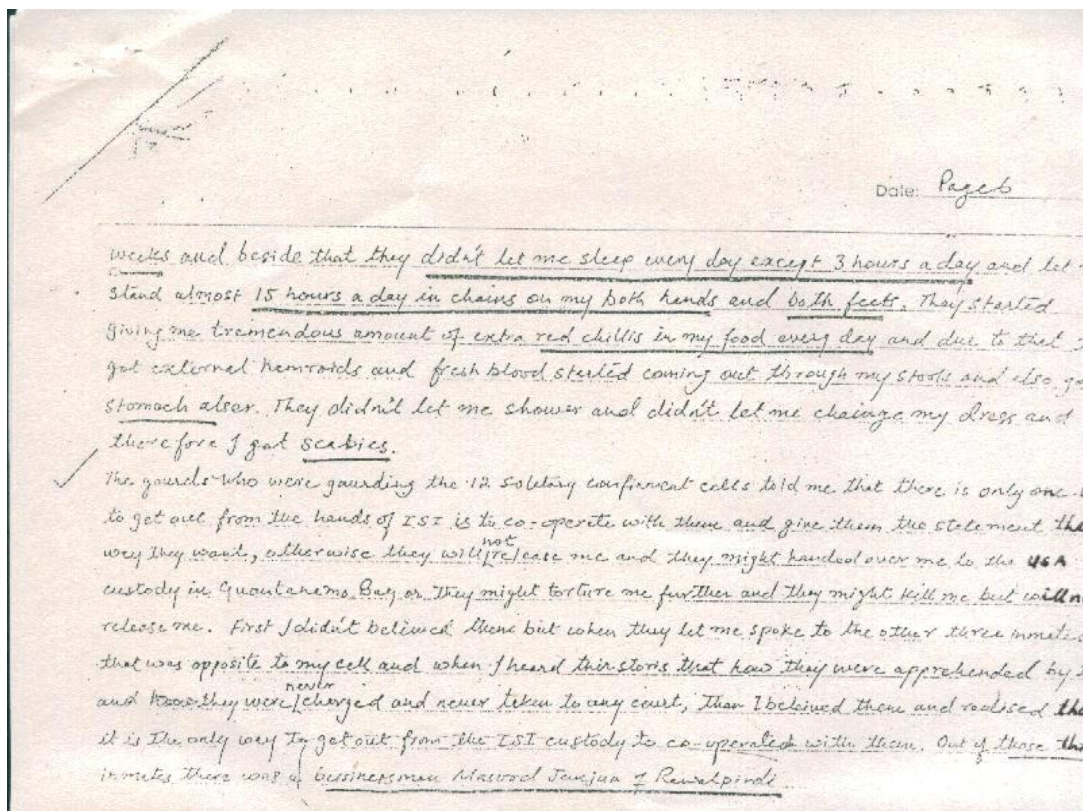 Date: Page 6
weeks and beside that they didn't let me sleep every day except 3 hours a day and let
stand almost 15 hours a day in chains on my both hands and both feets. They started
giving me tremendous amount of extra red chillis in my food every day and due to that
got external hemroids and fresh blood started coming out through my stools and also
stomach alser. They didn't let me shower and didn't let me chainge my dress and
therefore I got scabies.
The gaurds who were gaurding the 12 soletary confinment cells told me that there is only one
to get out from the hands of ISI is to co-operate with them and give them the statement the
way they want, otherwise they will not release me and they might handool over me to the USA
custody in Guontanemo Bay or they might torture me further and they might kill me but
release me. First I didn't belived them but when they let me spoke to the other three inmetes
that was opposite to my cell and when I heard thir storis that how they were apprehended by
and they were never charged and never taken to any court, then I beleived them and realised
it is the only way to get out from the ISI custody to co-operated with them. Out of those
inmetes there was a bussinersman Masood Janjua of Rawalpindi